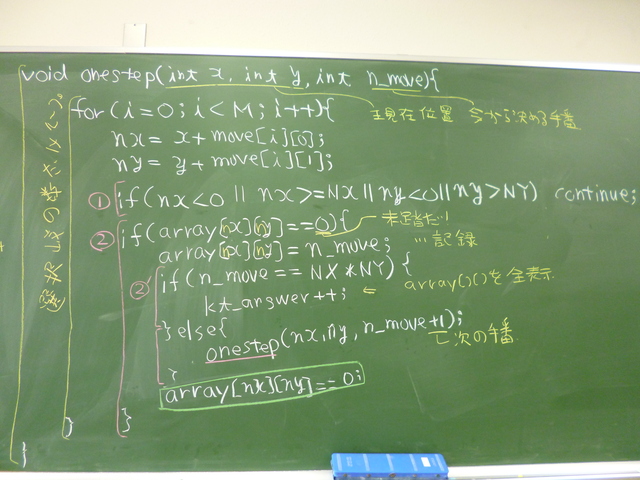 void onestep(int x, int y, int n_move){
for (i=0; i<M; i++){
現在位置 今から決める手番
nx = x+move[i][0];
ny = y+move[i][1];
① if(nx<0 || nx>=NX || ny<0 || ny>NY) continue;
② if(array[nx][ny]==0){
未踏だ!!
array[nx][ny]=n_move;
記録
② if(n_move == NX*NY) {
array()()を全表示
kt_answer++;
}else{
onestep(nx,ny, n_move+1);
次の手番
}
array[nx][ny]=0;
}
}
}